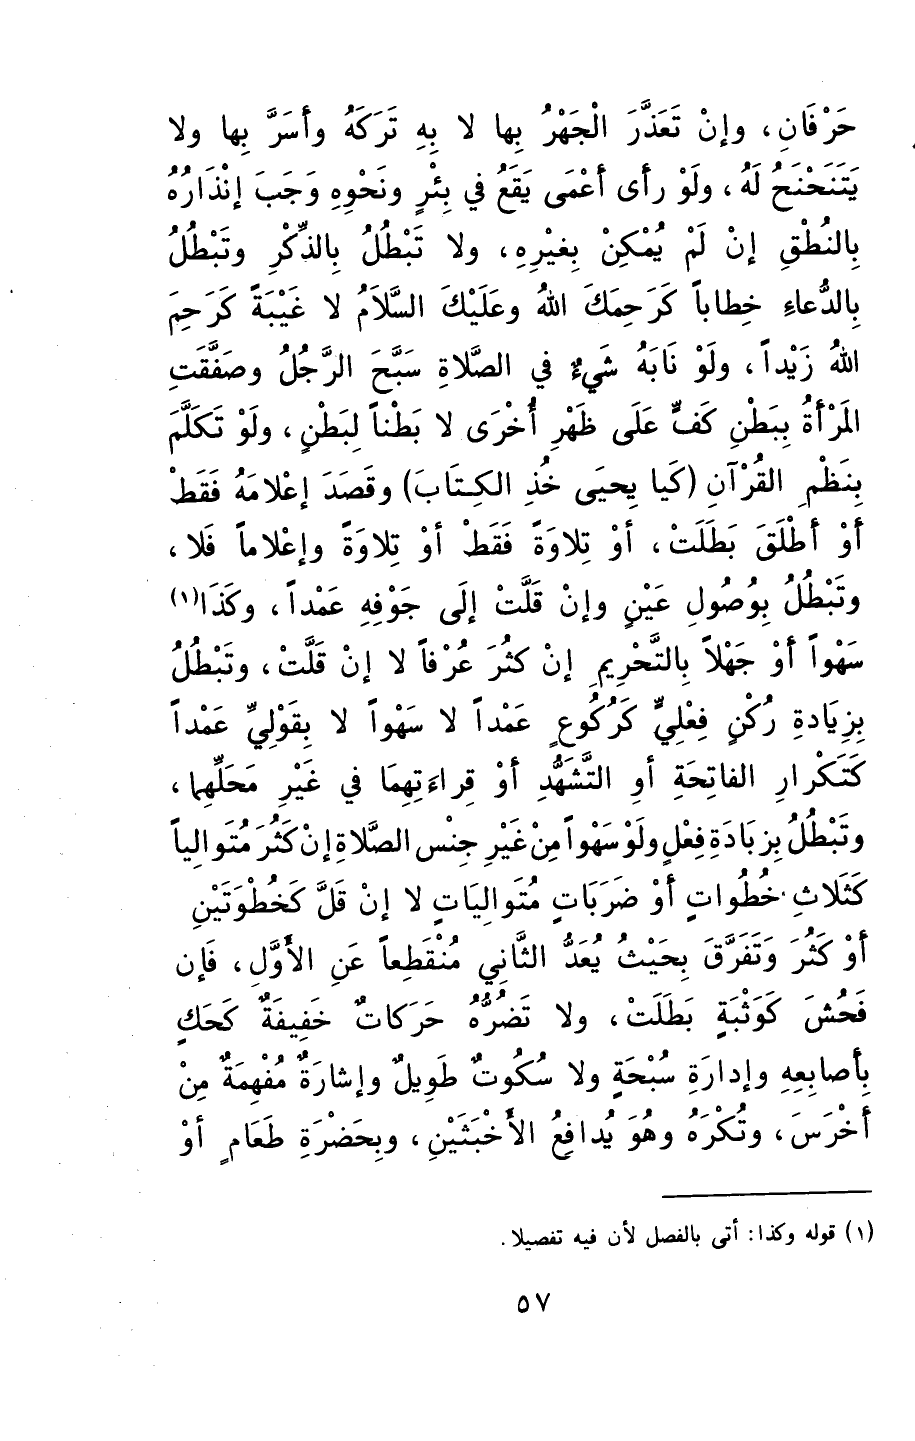 حَرْفَانِ، وإنْ تَعَذَّرَ الْجَهْرُ بِها لا بِهِ تَرَكَهُ وأَسَرَّ بِها ولا
يَتَنَحْنَحُ لَهُ، ولَوْ رأى أَعْمَى يَقَعُ في بِئْرٍ ونَحْوِهِ وَجَبَ إنْذَارُهُ
بِالنُطْقِ إنْ لَمْ يُمْكِنْ بِغَيْرِهِ، ولا تَبْطُلُ بِالذِّكْرِ وتَبْطُلُ
بِالدُّعاءِ خِطاباً كَرَحِمَكَ اللهُ وعَلَيْكَ السَّلَامُ لا غَيْبَةً كَرَحِمَ
اللهُ زَيْداً، ولَوْ نَابَهُ شَيْءٌ في الصَّلاةِ سَبَّحَ الرَّجُلُ وصَفَّقَتِ
المَرْأَةُ بِبَطْنِ كَفٍّ عَلَى ظَهْرِ أُخْرَى لا بَطْناً لِبَطْنٍ، ولَوْ تَكَلَّمَ
بِنَظْمِ القُرْآنِ (كَيا يحيَى خُذِ الكِتَابَ) وقَصَدَ إعْلامَهُ فَقَطْ
أَوْ أَطْلَقَ بَطَلَتْ، أَوْ تِلاوَةً فَقَطْ أَوْ تِلاوَةً وإعْلاماً فَلا،
وتَبْطُلُ بِوُصُولِ عَيْنٍ وإنْ قَلَّتْ إلَى جَوْفِهِ عَمْداً، وكَذَا(١)
سَهْواً أَوْ جَهْلاً بِالتَّحْرِيمِ إنْ كثُرَ عُرْفاً لا إنْ قَلَّتْ، وتَبْطُلُ
بِزِيَادةِ رُكْنٍ فِعْلِيٍّ كَرُكُوعٍ عَمْداً لا سَهْواً لا بِقَوْلِيٍّ عَمْداً
كَتَكْرارِ الفاتِحَةِ أوِ التَّشَهُّدِ أَوْ قِراءَتِهِمَا في غَيْرِ مَحَلِّهِما،
وتَبْطُلُ بِزيادَةِ فِعْلٍ ولَوْ سَهْواً مِنْ غَيْرِ جِنْسِ الصَّلاةِ إنْ كَثُرَ مُتَوالِياً
كَثَلاثِ خُطُواتٍ أَوْ ضَرَبَاتٍ مُتَوالِيَاتٍ لا إنْ قَلَّ كَخُطْوَتَيْنِ
أَوْ كَثُرَ وَتَفَرَّقَ بِحَيْثُ يُعَدُّ الثَّانِي مُنْقَطِعاً عَنِ الأَوَّلِ، فَإن
فَحُشَ كَوَثْبَةٍ بَطَلَتْ، ولا تَضُرُّهُ حَرَكاتٌ خَفِيفَةٌ كَحَكٍ
بِأَصابِعِهِ وإدارَةِ سُبْحَةٍ ولا سُكُوتٌ طَوِيلٌ وإشارَةٌ مُفْهِمَةٌ مِنْ
أَخْرَسَ، وتُكْرَهُ وهُوَ يُدافِعُ الأَخْبَثَيْنِ، وبِحَضْرَةِ طَعَامٍ أوْ
(١) قوله وكذا: أتى بالفصل لأن فيه تفصيلا.
٥٧